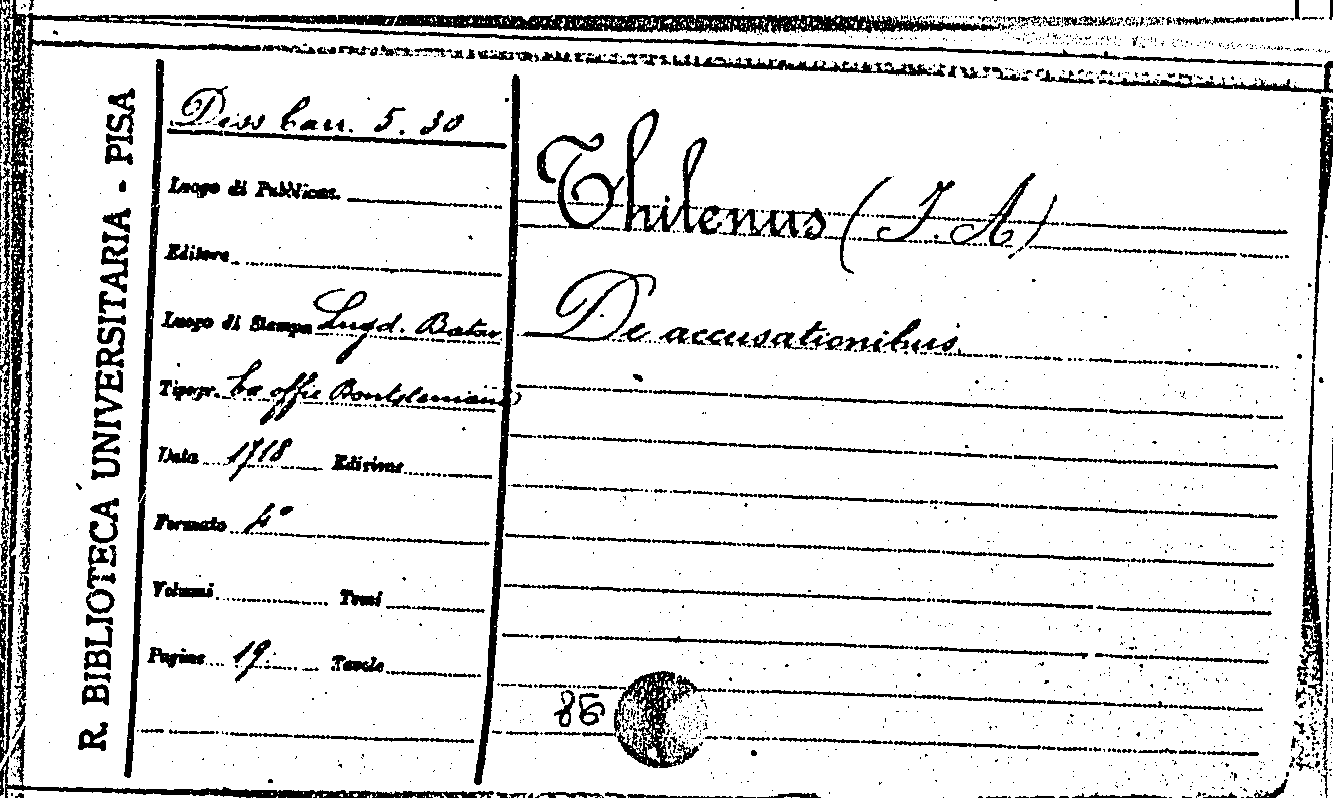 R. BIBLIOTECA UNIVERSITARIA - PISA
Diss Carr. 5. 30
Luogo di Pubblicaz.
Editore
Luogo di Stampa Lugd. Batav
Tipogr. Ex offic
Data 1718 Edizione
Formato 4°
Volumi Tomi
Pagine 19. Tavole
Thilenus (J. A)
De accusationibus.
86